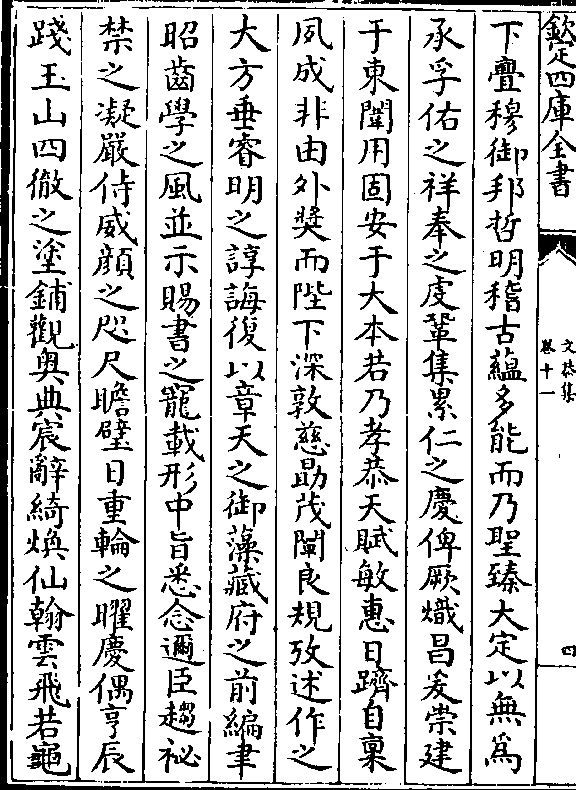 欽定四庫全書
文恭集
卷十一
四
下亶穆御邦哲明稽古蘊多能而乃聖臻大定以無為
承孚佑之祥奉之虔鞏集累仁之慶俾厥熾昌爰崇建
于東闈用固安于大本若乃孝恭天賦敏惠日躋自稟
夙成非由外奬而陛下深敦慈勗茂闡良規攷述作之
大方垂睿明之諄誨復以章天之御藻藏府之前編聿
昭齒學之風並示賜書之寵載形中旨悉念邇臣趨祕
禁之凝嚴侍威顔之咫尺瞻璧日重輪之曜慶偶亨辰
踐玉山四徹之塗鋪觀奥典宸辭綺煥仙翰雲飛若龜